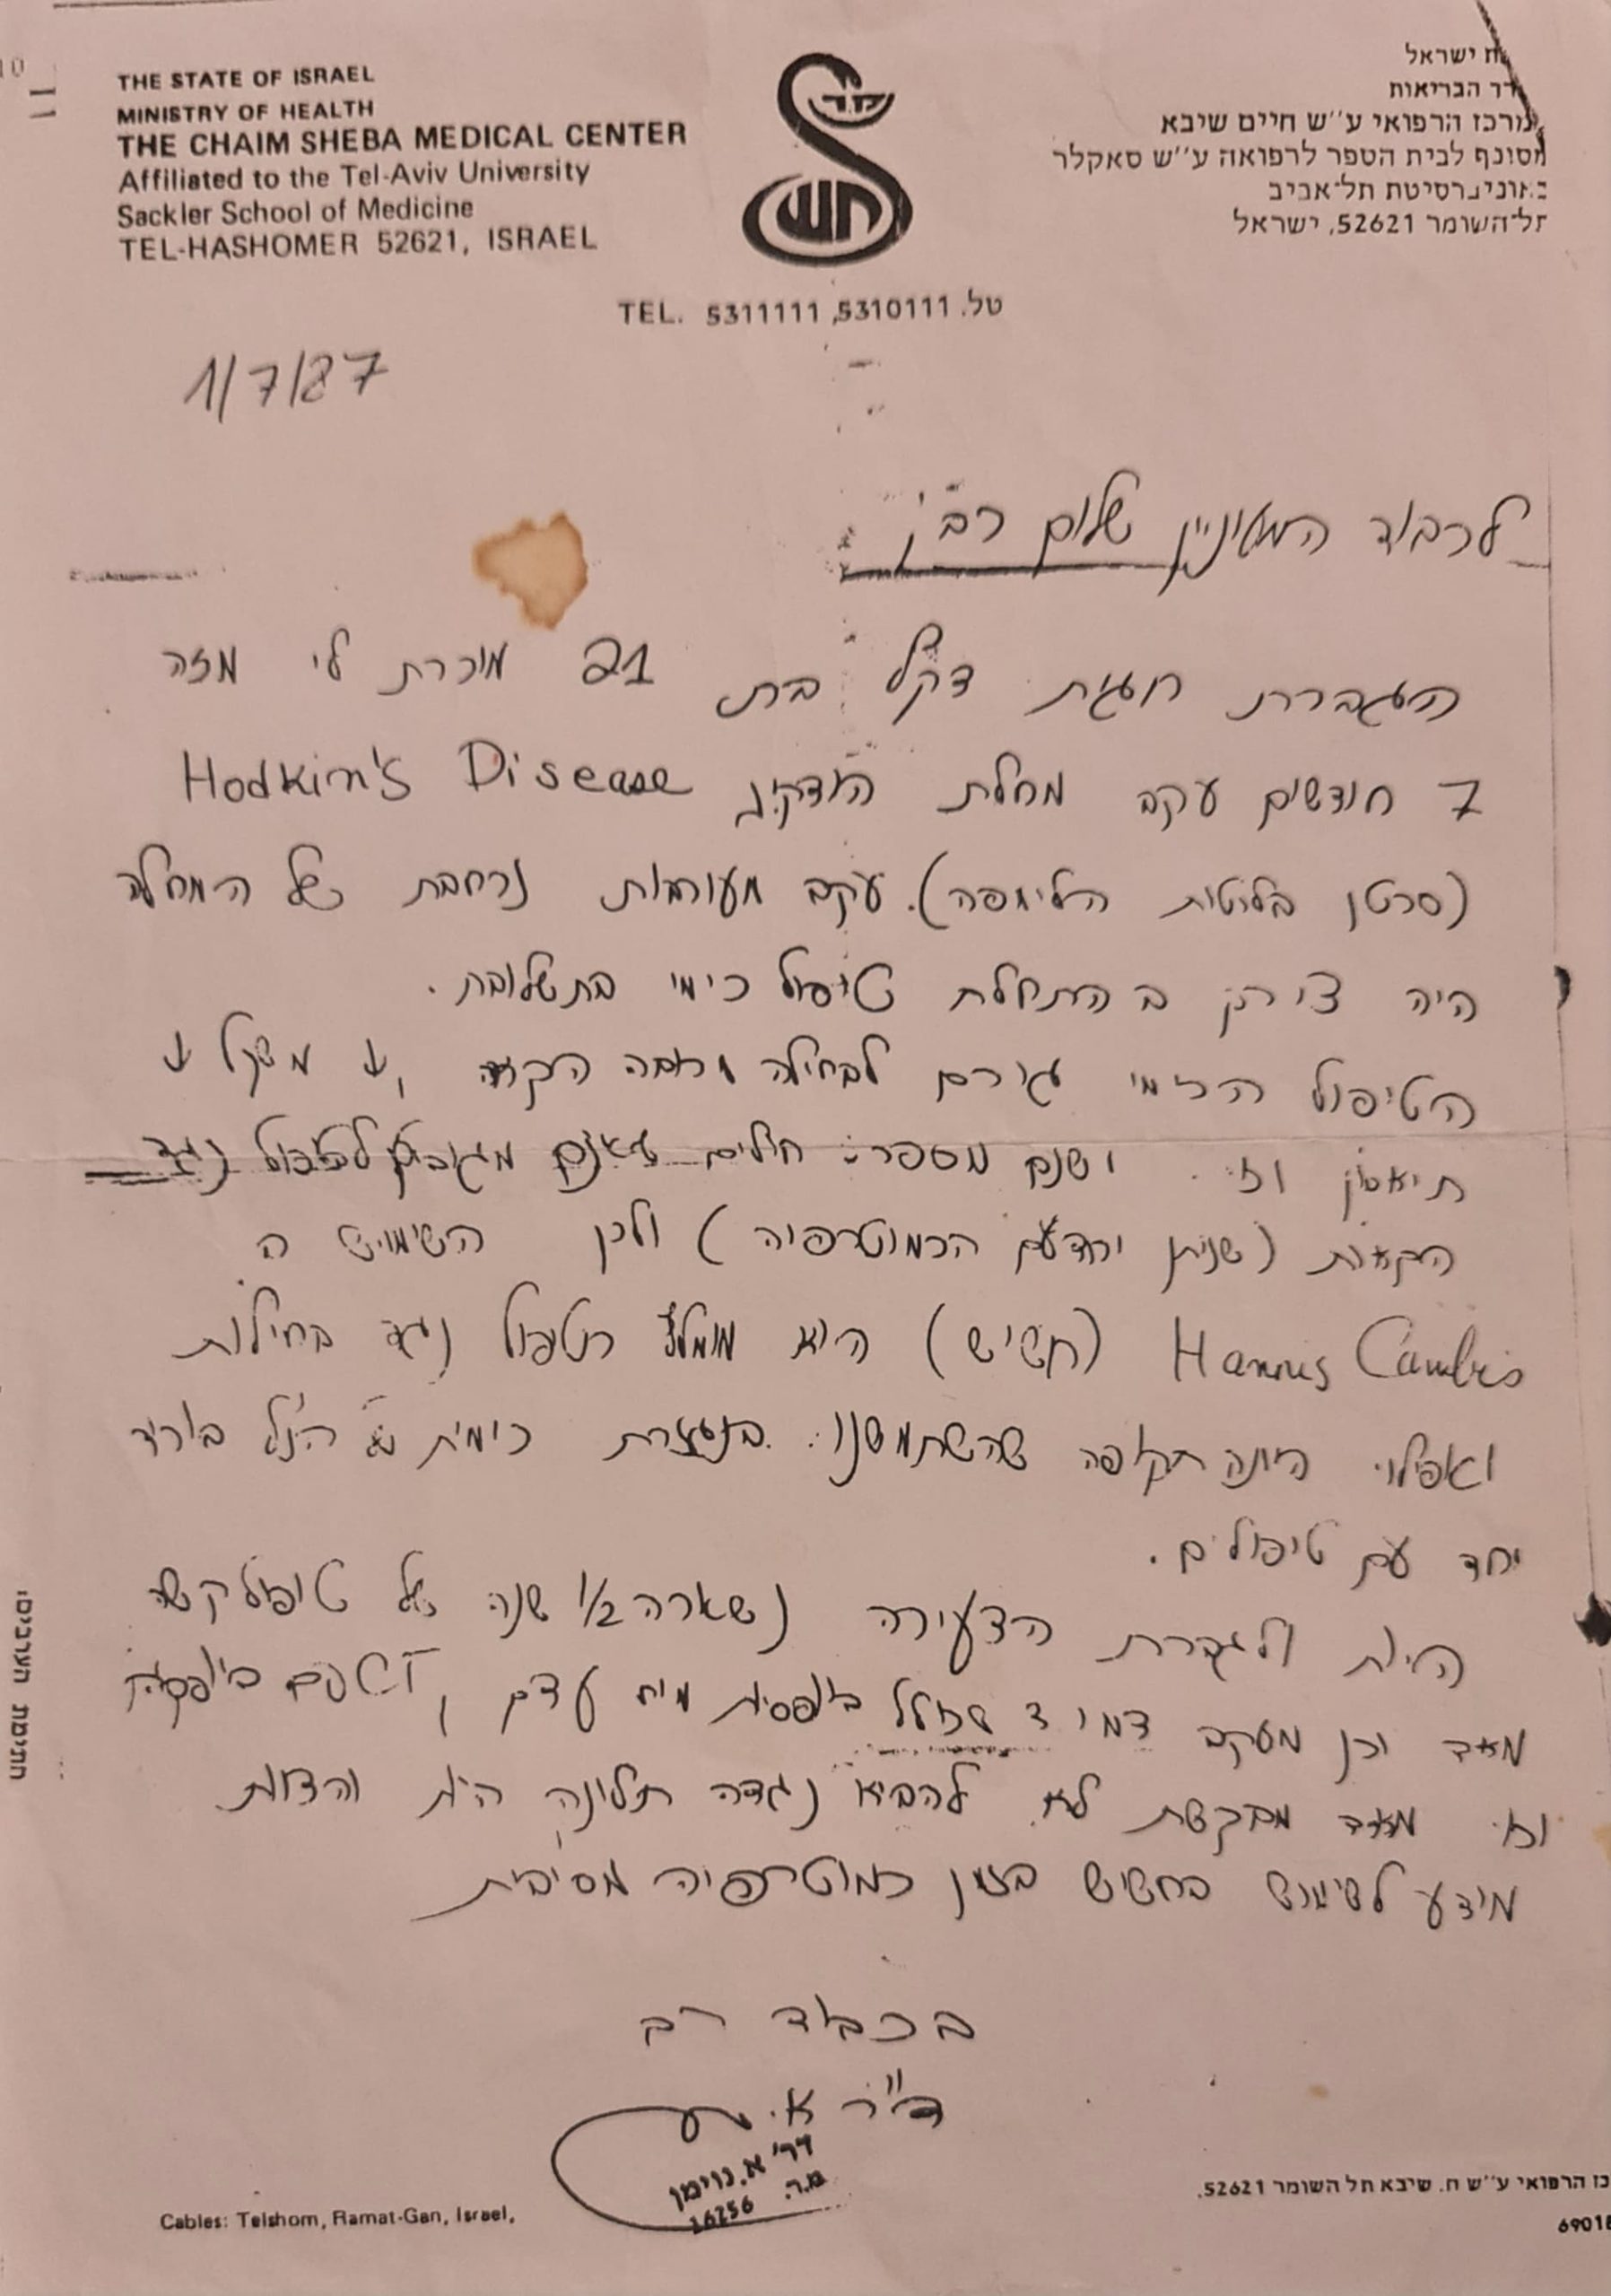 THE STATE OF ISRAEL
MINISTRY OF HEALTH
THE CHAIM SHEBA MEDICAL CENTER
Affiliated to the Tel-Aviv University
Sackler School of Medicine
TEL-HASHOMER 52621, ISRAEL
ישראל
הבריאות
המרכז הרפואי ע''ש חיים שיבא
מסונף לבית הספר לרפואה ע''ש סאקלר
באוניברסיטת תל-אביב
תל-השומר 52621, ישראל
TEL. 5311111 ,5310111 .טל
1/7/87
לכבוד המעוניין שלום רב,
העגברת חגית דקל בת 21 מוכרת לי מזה
7 חודשים עקב מחלת הודקין Hodkin's Disease
(סרטן בלוטות הלימפה). עקב מעורבות נרחבת של המחלה
היה צורך בהתחלת טיפול כימי בתשלובת.
הטיפול הכימי גורם לבחילה הקאה, ↓ משקל ↓
תיאבון וכ'. ישנם מספר חולים שאינם מגיבים לטיפול נגד
הקאות (שניתן יחד עם הכמוטרפיה) ולכן השימוש ה
Hannis Cambis (חשיש) הוא מומלץ כטיפול נגד בחילות
ואפילו היתה תקופה שהשתמשנו בנגזרת כימית הנ"ל
יחד עם טיפולים.
היות ולגברת הצעירה נשארה 1/2 שנה של טיפול קשה
מאד וכן מעקב צמוד שכולל ביופסית מוח עצם, CT
וכו' מאד מבקשת לא להביא נגדה תלונה היות והצוות
מודע לשימוש בחשיש בזמן כמוטרפיה מסיבית
בכבוד רב
ד"ר א.
דר' א. נוימן
מ.ר. 16256
חתימת העורבים:
Cables: Telshom, Ramat-Gan, Israel,
הרפואי ע''ש ח. שיבא תל השומר 52621.